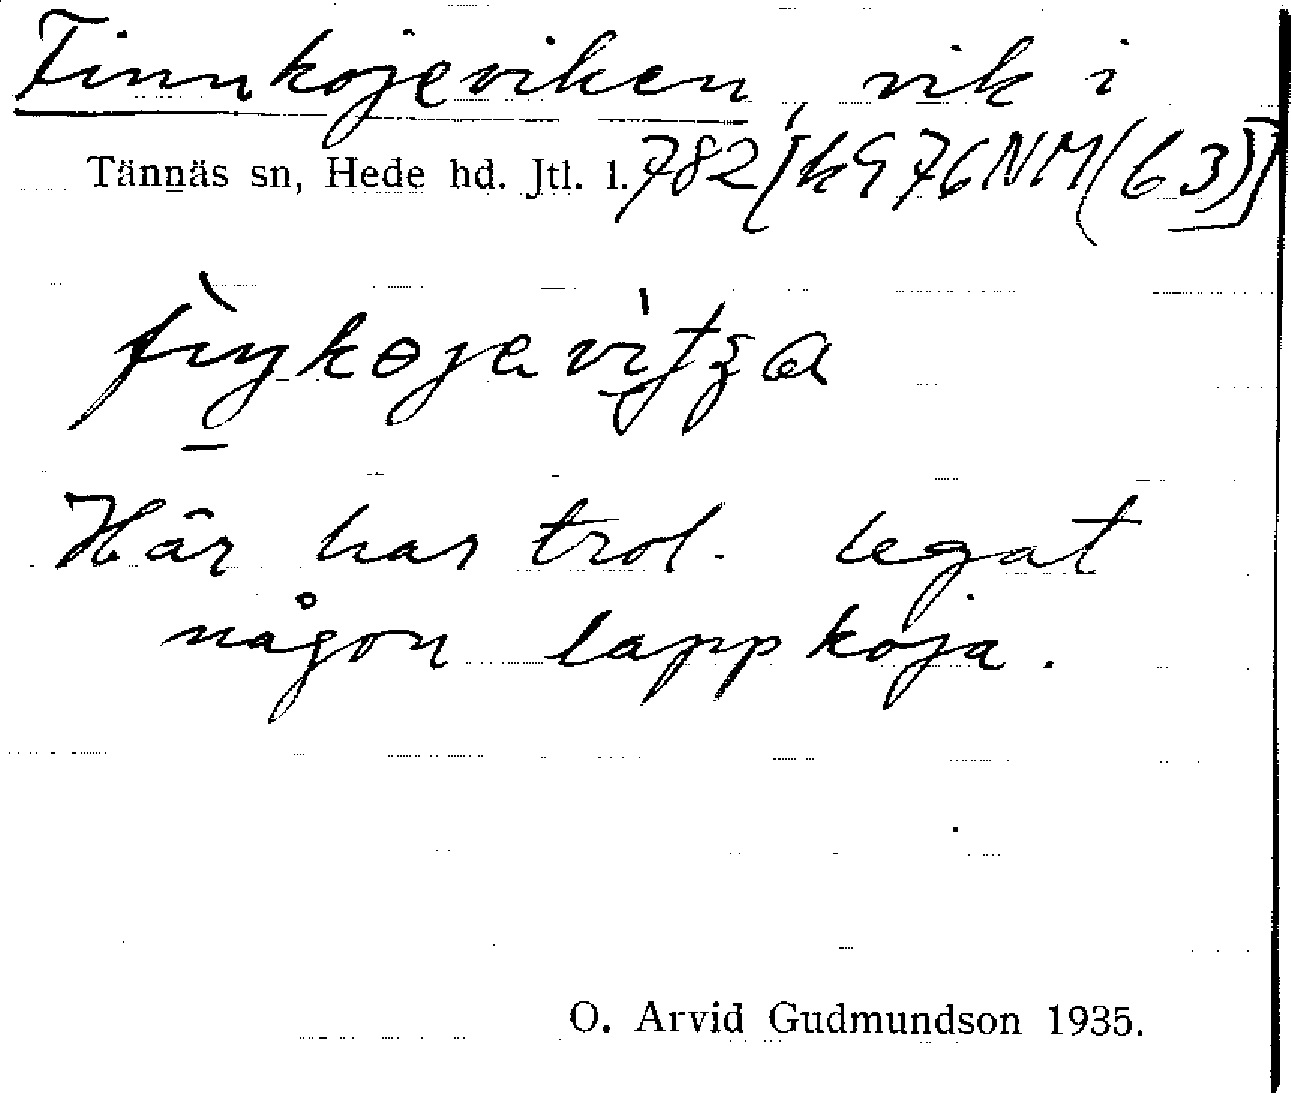 Finnkojeviken, vik i
Tännäs sn, Hede hd. Jtl. l. 782 [k976NM(63)]
Här har trol. legat
någon lappkoja.
O. Arvid Gudmundson 1935.